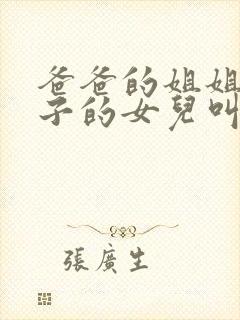 爸爸的姐姐
子的女兒叫
張廣生